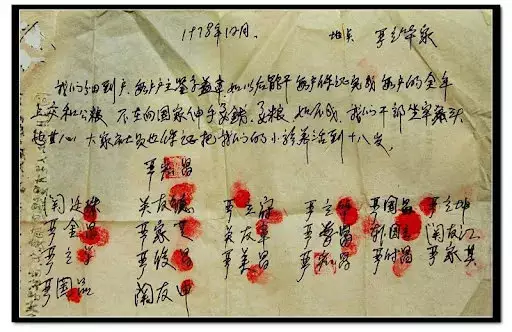 1978年12月. 地点 严立华家
我们分田到户 每户户主签字盖章 如以后能干 每户保证完成每户的全年
上交和公粮 不在向国家伸手要钱要粮 如不成,我们干部坐牢杀头
也甘心 大家社员也保证把我们的小孩养活到十八岁。
严宏昌
关廷珠 关友德 严立符 严立华 严国昌 严立坤
严金昌 严家芝 关友章 严学昌 韩国云 关友江
严立学 严俊昌 严美昌 严宏昌 严付昌 严家其
严国品 关友申